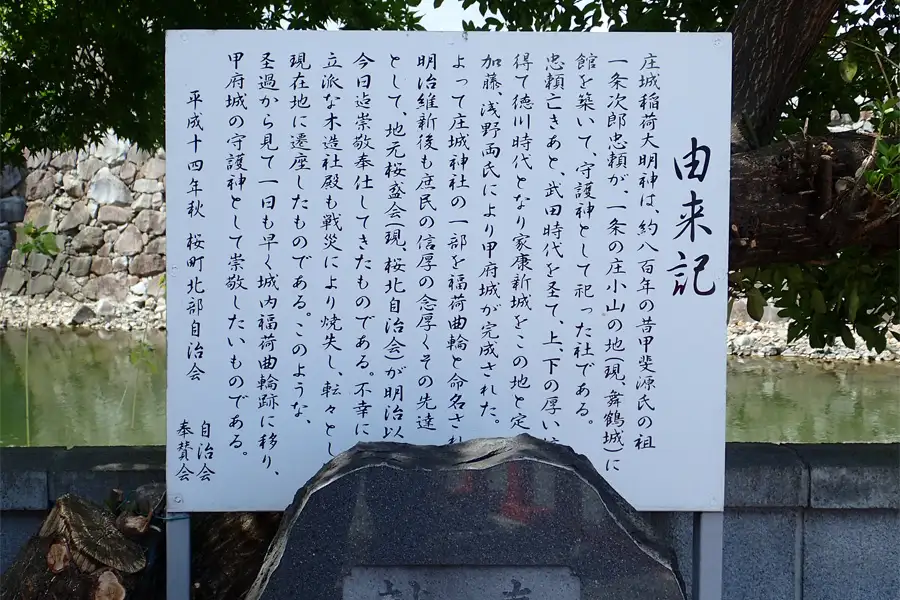 由来記
庄城稲荷大明神は、約八百年の昔甲斐源氏の祖
一条次郎忠頼が、一条の庄小山の地(現、舞鶴城)に
館を築いて、守護神として祀った社である。
忠頼亡きあと、武田時代を圣て、上、下の厚い
得て徳川時代となり家康新城をこの地と定
加藤、浅野両氏により甲府城が完成された。
よって庄城神社の一部を福荷曲輪と命名され
明治維新後も庶民の信厚の念厚くその先達
として、地元桜盛会(現、桜北自治会)が明治以
今日迠崇敬奉仕してきたものである。不幸に
立派な木造社殿も戦災により焼失し、転々とし
現在地に遷座したものである。このような、
圣過から見て一日も早く城内福荷曲輪跡に移り、
甲府城の守護神として崇敬したいものである。
平成十四年秋 桜町北部自治会
自治会
奉賛会